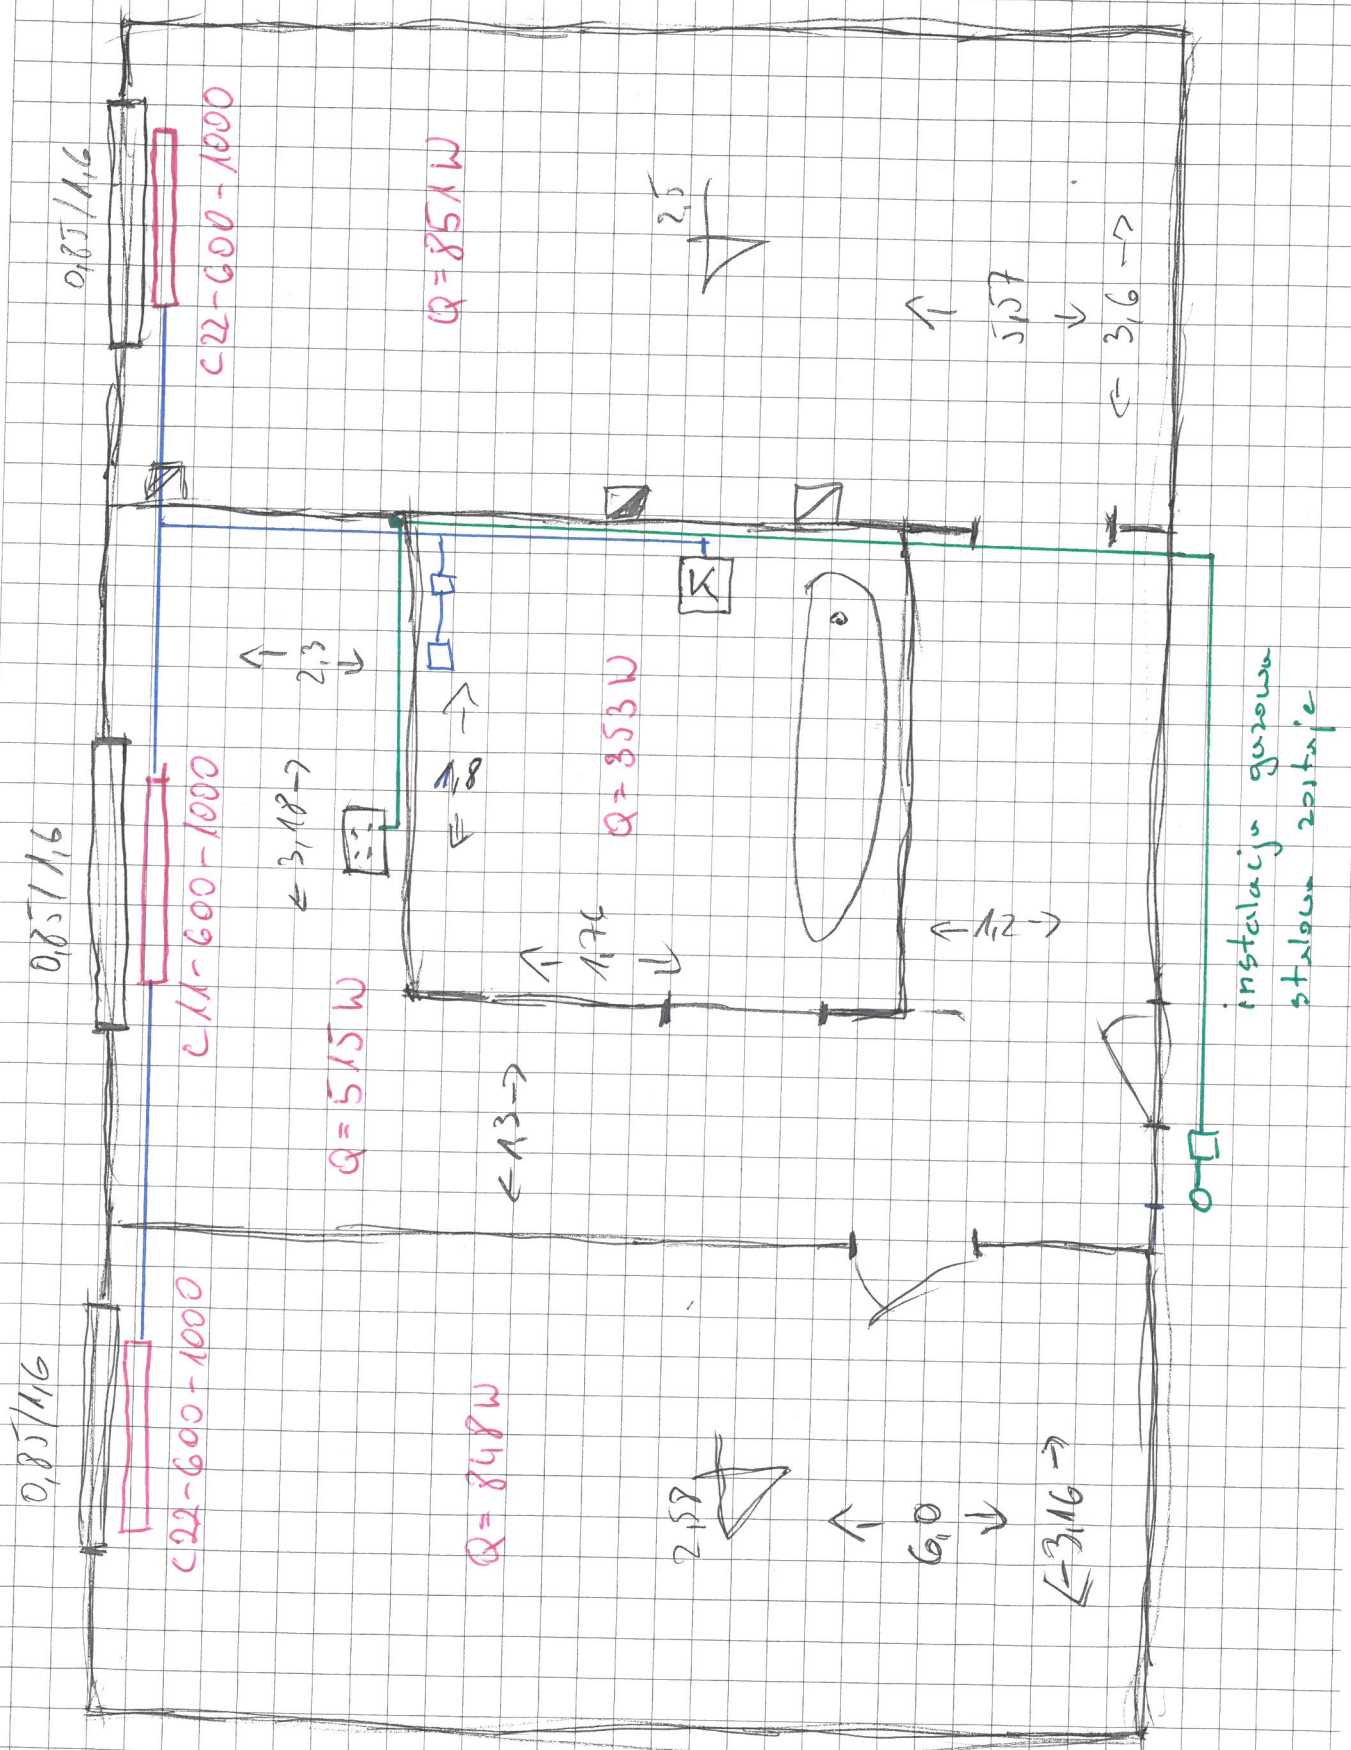 0,85/1,6
C22-600-1000
Q=851W
2,5
5,57
← 3,6 →
K
2,3
←3,18→
← 1,8 →
Q=353W
0,85/1,6
C11-600-1000
Q=515W
1,76
←1,2→
←1,3→
instalacja gazowa
stalowa zostaje
0,85/1,6
C22-600-1000
Q=848W
2,58
6,0
←3,16→